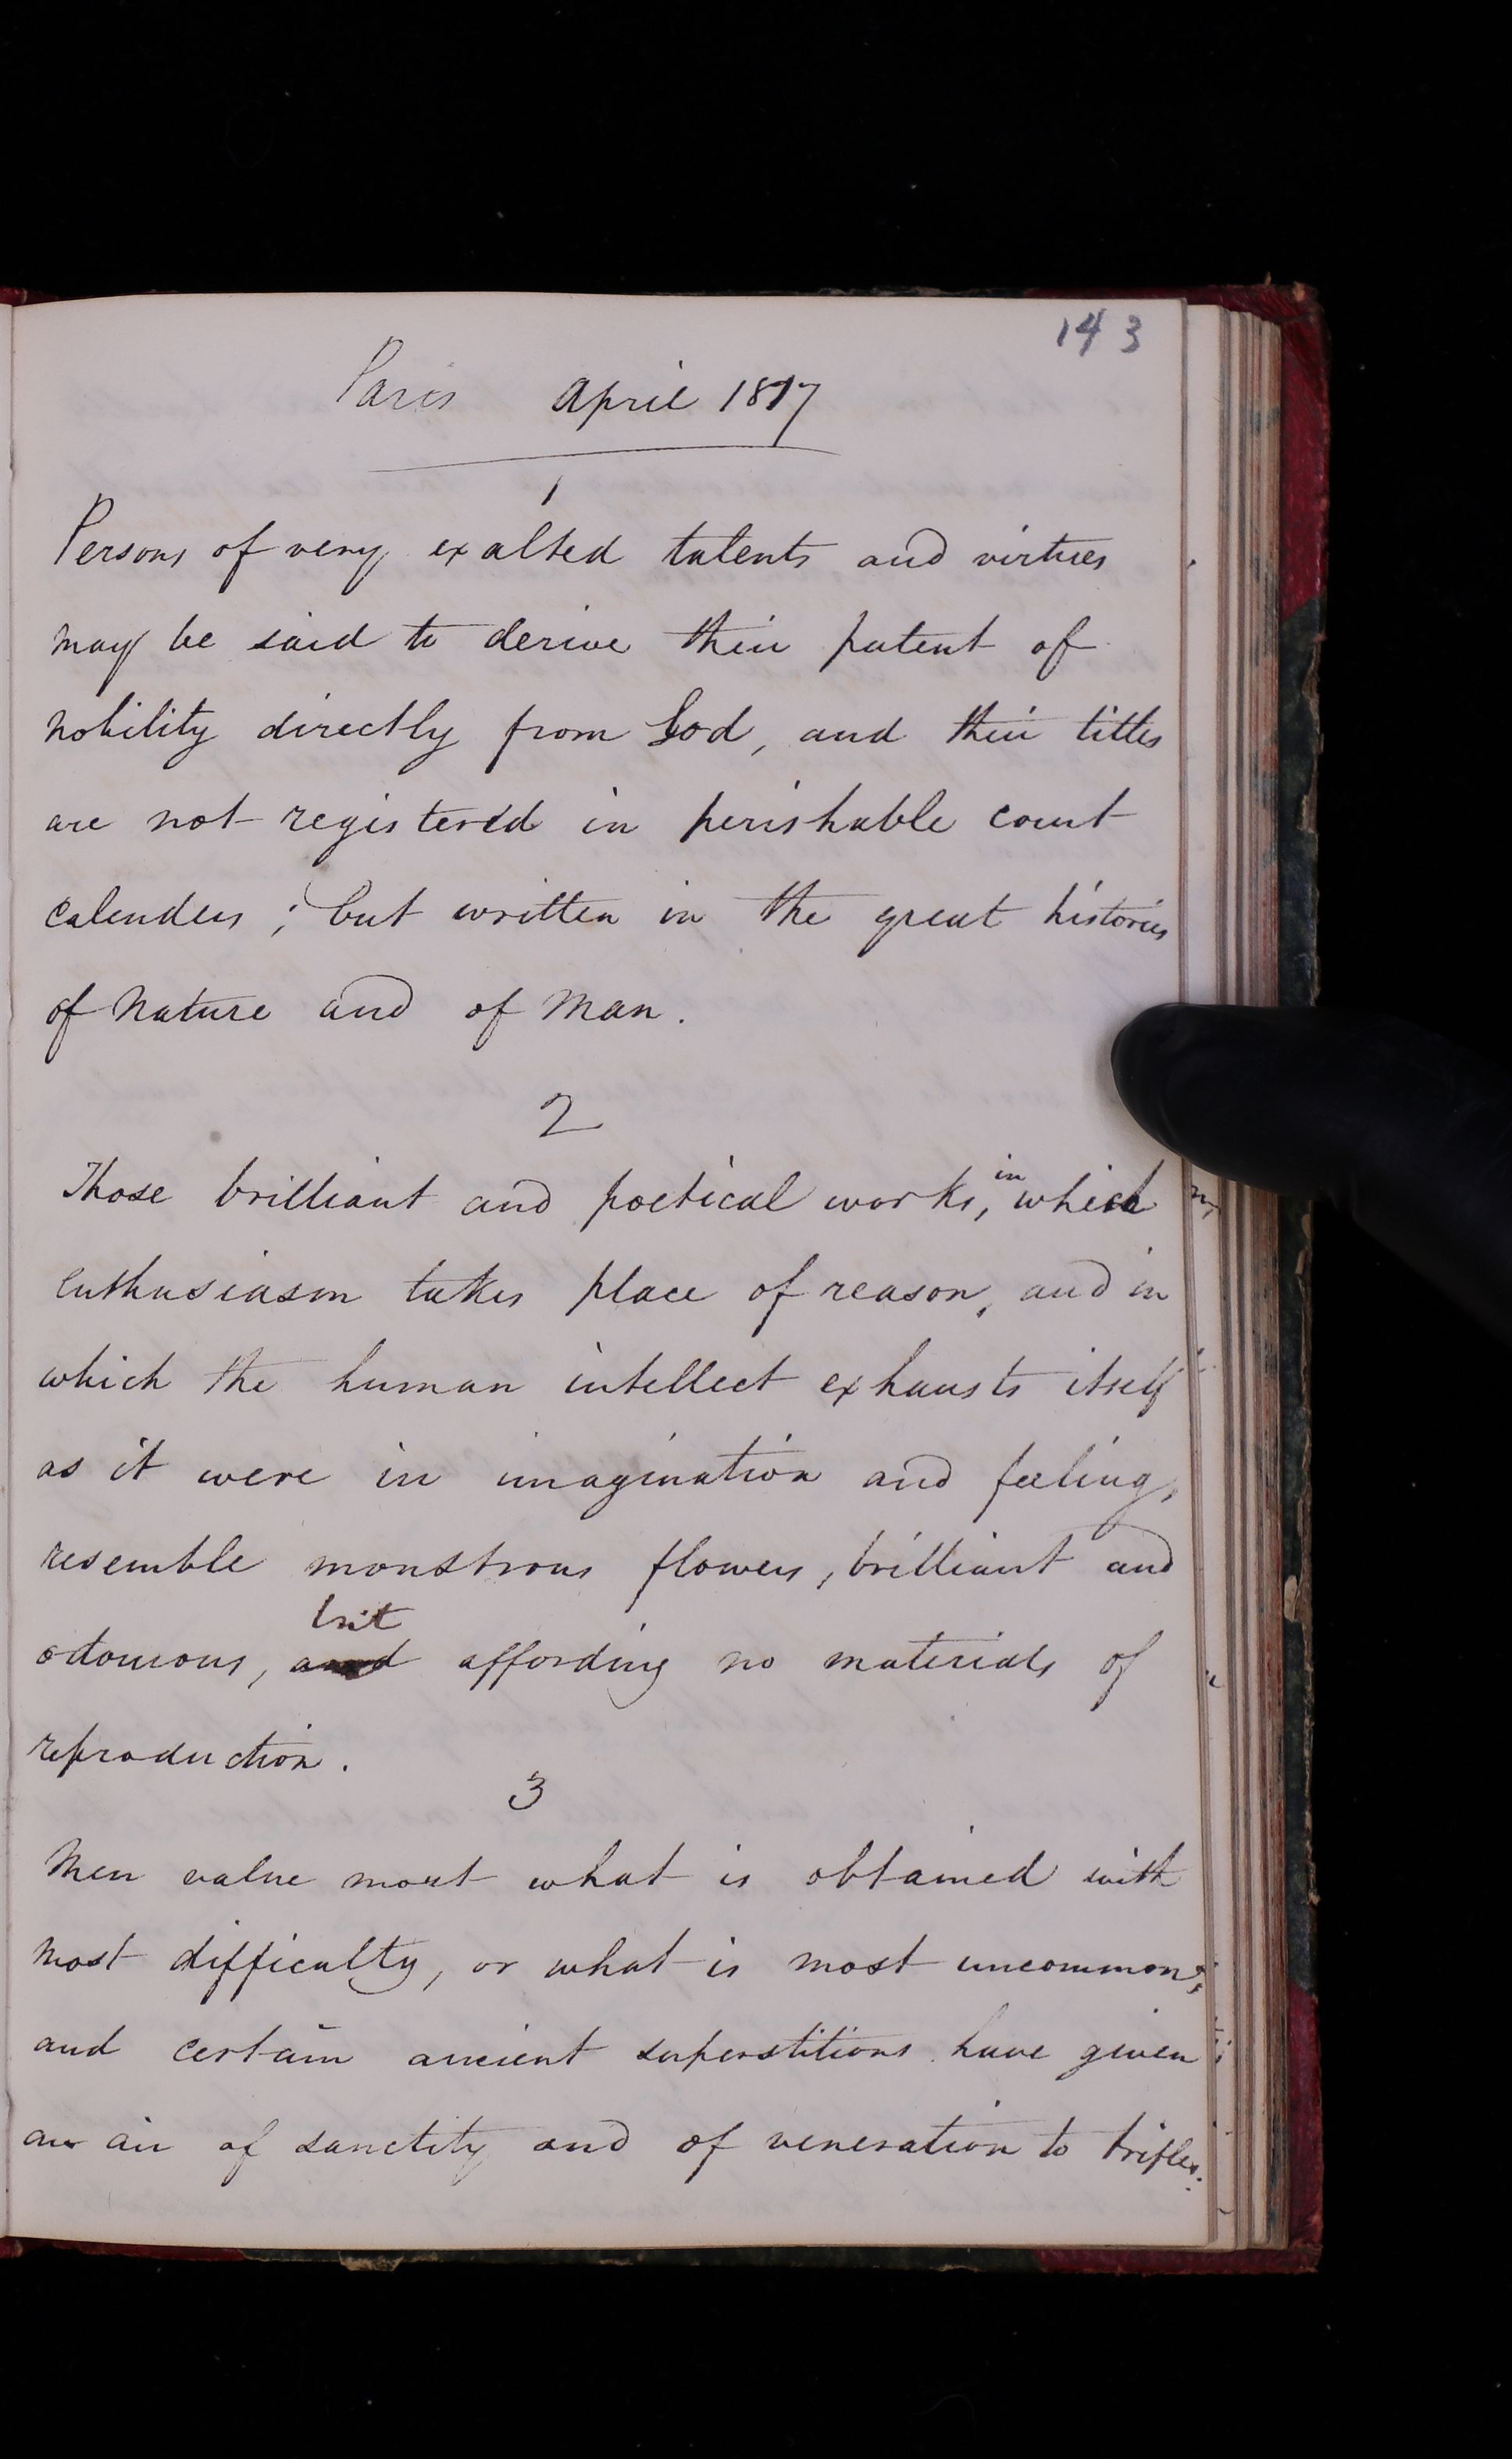 143
Paris April 1817
1
Persons of very exalted talents and virtues
may be said to derive their patent of
nobility directly from God, and their titles
are not registered in perishable court
calenders; but written in the great histories
of Nature and of Man.
2
Those brilliant and poetical works, in which
enthusiasm takes place of reason, and in
which the human intellect exhausts itself
as it were in imagination and feeling,
resemble monstrous flowers, brilliant and
odourous, but and affording no materials of
reproduction.
3
Men value most what is obtained with
most difficulty, or what is most uncommon;
and certain ancient superstitions have given
an air of sanctity and of veneration to trifles.